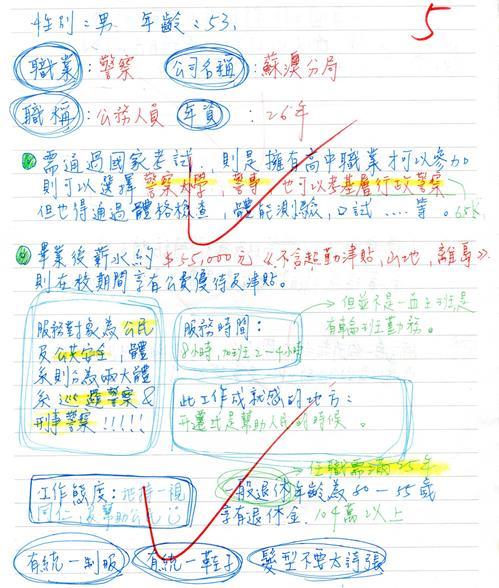 性別：男 年齡：53. 5
職業：警察 公司名稱：蘇澳分局
職稱：公務人員 年資：26年
需通過國家考試，則是擁有高中職業才可以參加
則可以選擇警察大學，警專，也可以考基層行政警察
但也得通過體格檢查，體能測驗，口試……等。
65K
畢業後薪水約 $55,000元 《不含超勤津貼，山地，離島》
則在校期間享有公費優待及津貼。
服務對象為公民
及公共安全，體
系則分為兩大體
系 巡邏警察 &
刑事警察！！！！！
服務時間：
8小時，加班2－4小時
但並不是一直上班是
有輪班勤務。
此工作成就感的地方：
是幫助人民的時候。
任職需滿25年
工作態度：
同仁，及幫助公民
一般退休年齡為50－55歲
享有退休金 104萬以上
有統一制服 有統一鞋子 髮型不要太誇張